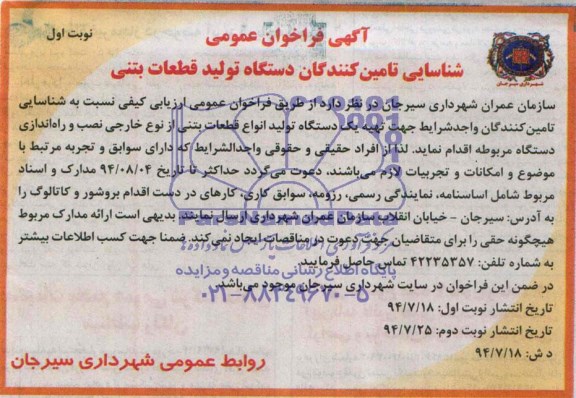 آگهی فراخوان عمومی
نوبت اول
شناسایی تامین‌کنندگان دستگاه تولید قطعات بتنی
شهرداری سیرجان
سازمان عمران شهرداری سیرجان در نظر دارد از طریق فراخوان عمومی ارزیابی کیفی نسبت به شناسایی
تامین‌کنندگان واجدشرایط جهت تهیه یک دستگاه تولید انواع قطعات بتنی از نوع خارجی نصب و راه‌اندازی
دستگاه مربوطه اقدام نماید. لذا از افراد حقیقی و حقوقی واجدالشرایط که دارای سوابق و تجربه مرتبط با
موضوع و امکانات و تجربیات لازم می‌باشند، دعوت می‌گردد حداکثر تا تاریخ ۹۴/۰۸/۰۴ مدارک و اسناد
مربوط شامل اساسنامه، نمایندگی رسمی، رزومه، سوابق کاری، کارهای در دست اقدام بروشور و کاتالوگ را
به آدرس: سیرجان – خیابان انقلاب سازمان عمران شهرداری ارسال نمایند. بدیهی است ارائه مدارک مربوط
هیچگونه حقی را برای متقاضیان جهت دعوت در مناقصات ایجاد نمی‌کند. ضمنا جهت کسب اطلاعات بیشتر
به شماره تلفن: ۴۲۲۳۵۳۵۷ تماس حاصل فرمایید.
پایگاه اطلاع رسانی مناقصه و مزایده
در ضمن این فراخوان در سایت شهرداری سیرجان موجود می‌باشد.
۰۲۱-۸۸۳۴۹۶۷۰-۵
تاریخ انتشار نوبت اول: ۹۴/۷/۱۸
تاریخ انتشار نوبت دوم: ۹۴/۷/۲۵
د ش: ۹۴/۷/۱۸
روابط عمومی شهرداری سیرجان